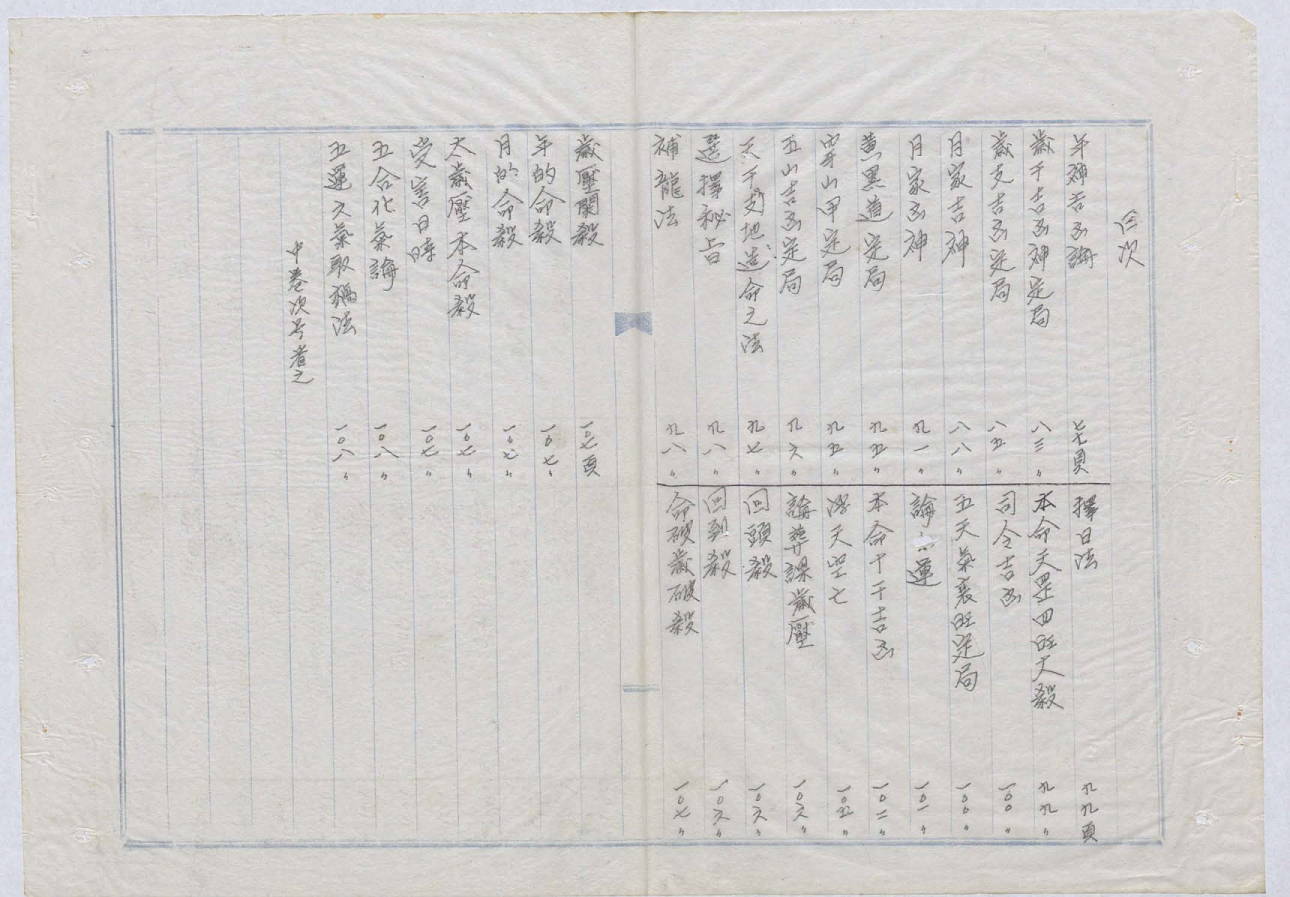 目次
年神吉凶論 七七頁
歲干吉凶神定局 八三〃
歲支吉凶定局 八五〃
月家吉神 八八〃
月家凶神 九一〃
黃黑道定局 九五〃
穿山甲定局 九五〃
五山吉凶定局 九六〃
天干支地造命之法 九七〃
選擇祕旨 九八〃
補龍法 九八〃
擇日法 九九頁
本命天罡四旺大殺 九九〃
司令吉凶 一〇〇〃
五天氣衰旺定局 一〇〇〃
論 運 一〇一〃
本命十干吉凶 一〇二〃
天空亡 一〇五〃
論葬課歲壓 一〇六〃
回頭殺 一〇六〃
回到殺 一〇六〃
命破歲破殺 一〇七〃
歲壓關殺 一〇七頁
年的命殺 一〇七〃
月的命殺 一〇七〃
太歲壓本命殺 一〇七〃
受害日時 一〇七〃
五合化氣論 一〇八〃
五運六氣歌稱法 一〇八〃
中卷次号者之